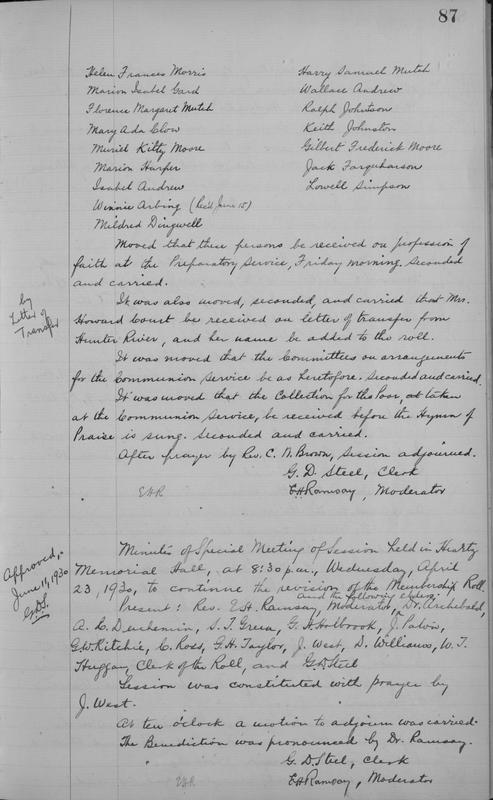 87
Helen Frances Morris
Marion Isabel Gard
Florence Margaret Mutch
Mary Ada Clow
Muriel Kitty Moore
Marion Harper
Isabel Andrew
Winnie Arbing (Rec'd June 15)
Mildred Dingwell
Harry Samuel Mutch
Wallace Andrew
Ralph Johnston
Keith Johnston
Gilbert Frederick Moore
Jack Farquharson
Lowell Simpson
Moved that these persons be received on profession of
faith at the Preparatory Service, Friday morning. Seconded
and carried.
by
Letter of
Transfer
It was also moved, seconded, and carried that Mrs.
Howard Court be received on letter of transfer from
Hunter River, and her name be added to the roll.
It was moved that the Committees on arrangements
for the Communion Service be as heretofore. Seconded and carried.
It was moved that the Collection for the Poor, as taken
at the Communion Service, be received before the Hymn of
Praise is sung. Seconded and carried.
After prayer by Rev. C. N. Brown, Session adjourned.
G. D. Steel, Clerk
EHR
EH Ramsay, Moderator
Approved,
June 11, 1930
G.D.S.
Minutes of Special Meeting of Session held in Heartz
Memorial Hall, at 8:30 p.m., Wednesday, April
23, 1930, to continue the revision of the Membership Roll.
Present: Rev. E.H. Ramsay, Moderator, and the following elders: Dr. Archibald,
A. L. Duchemin, S. T. Green, G. H. Holbrook, J.
G.W. Ritchie, C. Ross, G.H. Taylor, J. West, D. Williams, W. T.
Huggan, Clerk of the Roll, and G.D. Steel
Session was constituted with prayer by
J. West.
At ten o'clock a motion to adjourn was carried.
The Benediction was pronounced by Dr. Ramsay.
G. D. Steel, Clerk
EHR
EH Ramsay, Moderator